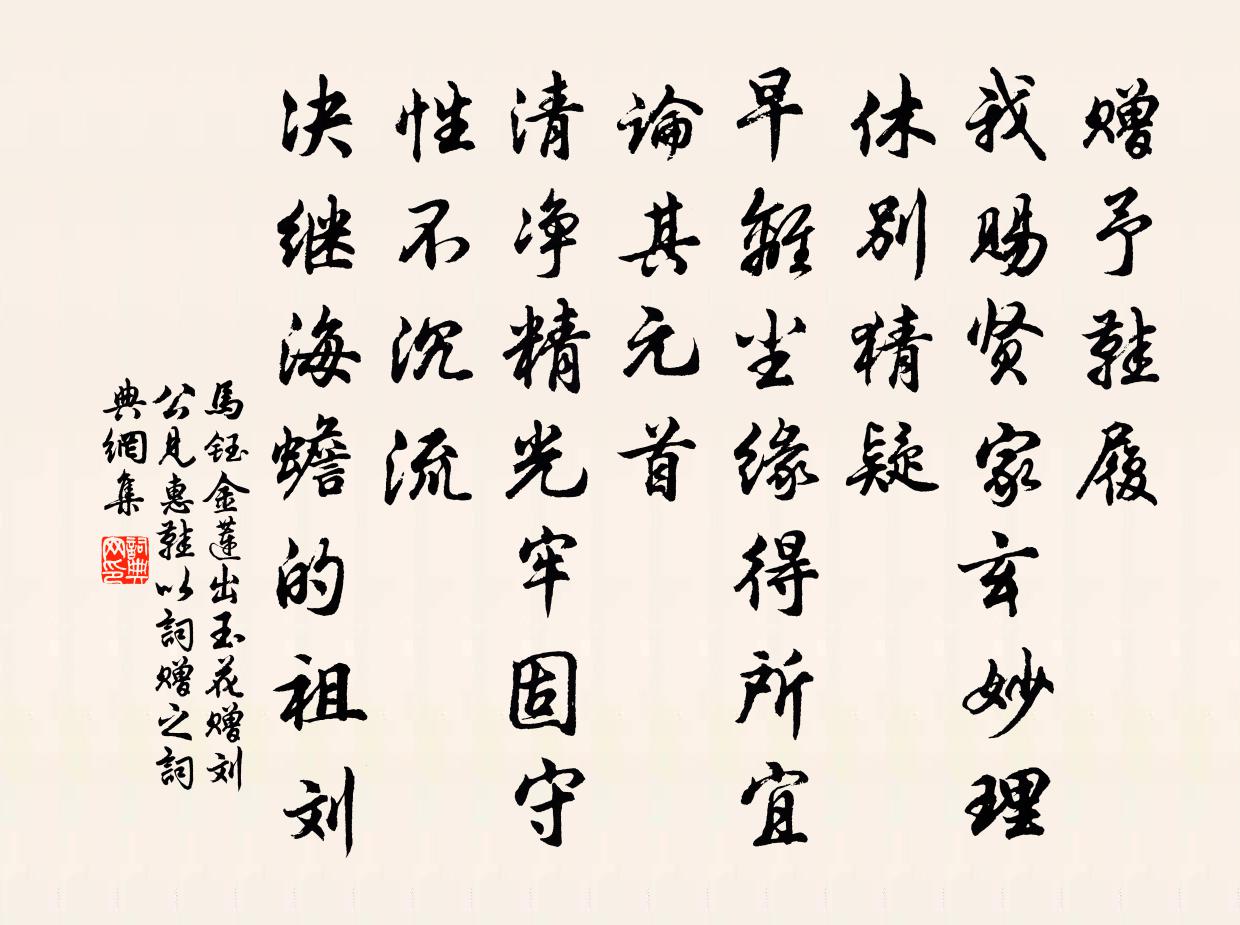 赠予鞋履
我赐贤家玄妙理
休别猜疑
早離尘缘得所宜
论其元首
清净精光牢固守
性不沉流
决继海蟾的祖刘
馬钰金莲出玉花赠刘
公見惠鞋以詞赠之詞
典網集
詞典
网印